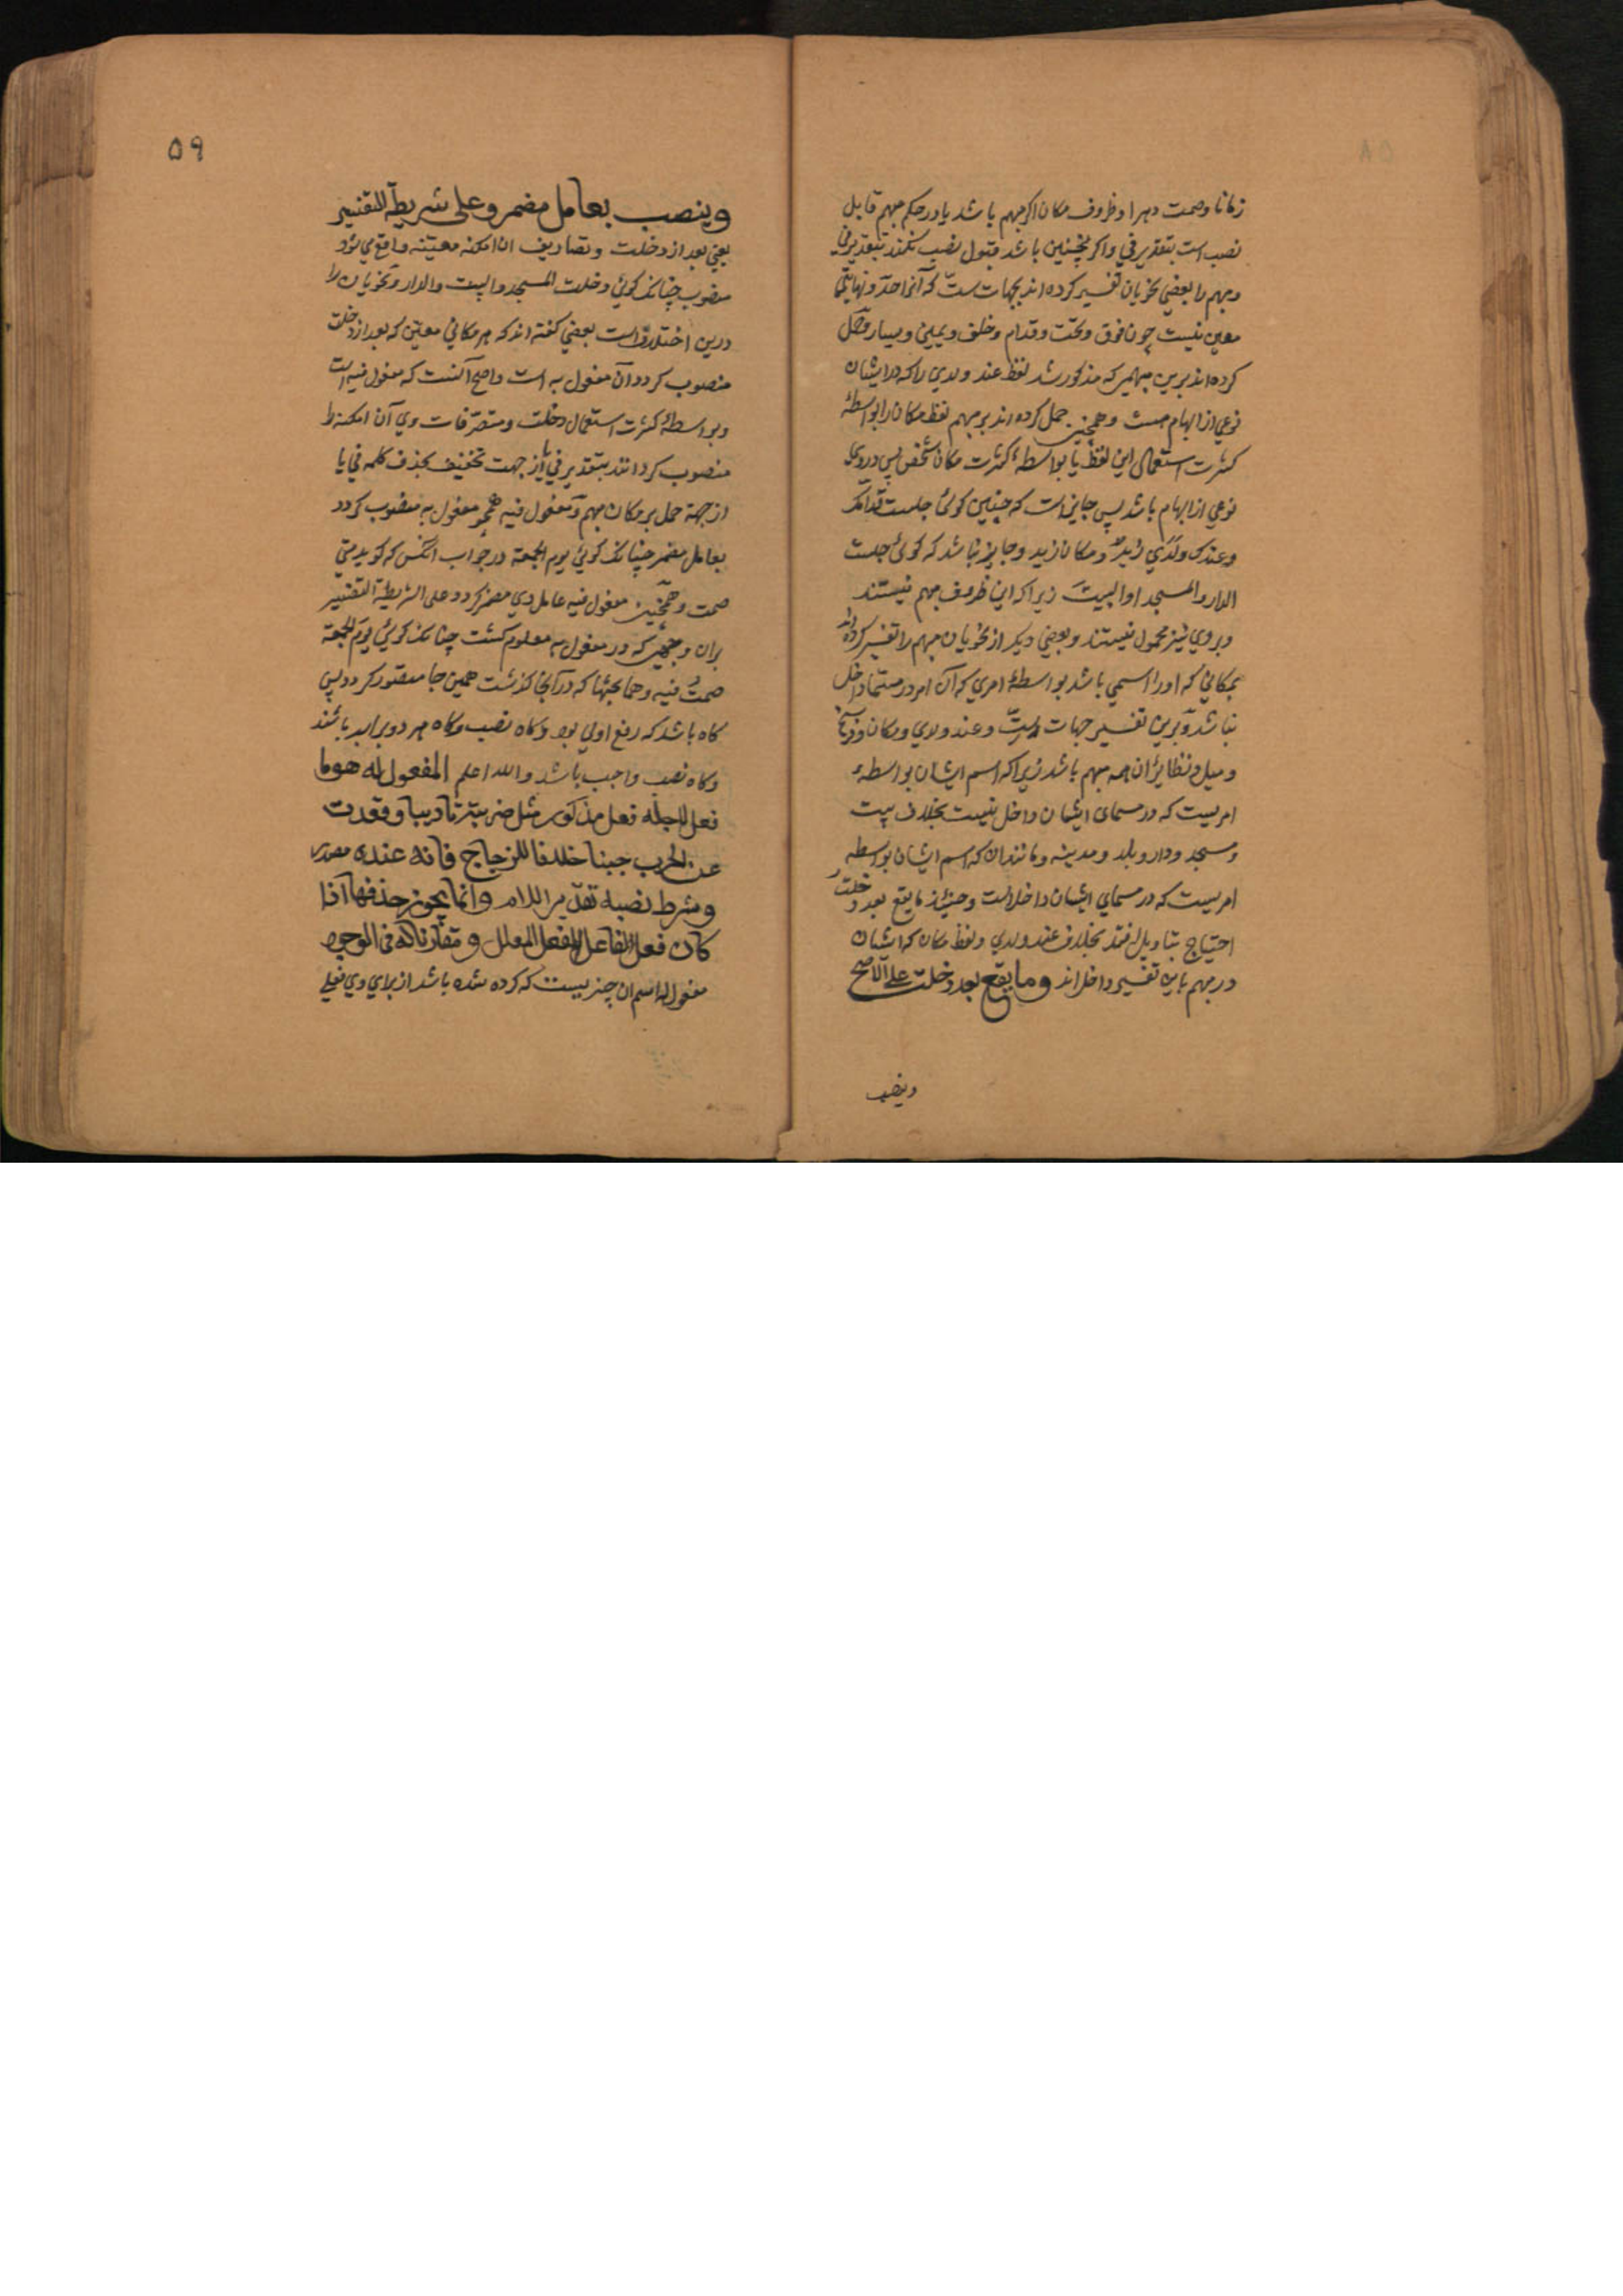 زمانا وصمت دهرا وظروف مکان اکر مبهم باشد یا در حکم مبهم قابل
نصب است بتقدیر في واکر نچنین باشد قبول نصب نکند بتقدیر في
ومبهم را بعضي نحویان تفسیر کرده اند بجهات ستّ که آنرا حدّ ونهایتي
معین نیست چون فوق وتحت وقدام وخلف ویمین ویسار وحمل
کرده اند برین مبهمي که مذکور شد لفظ عند ولدي را که در ایشان
نوعي از ابهام هست وهمچنین حمل کرده اند بر مبهم لفظ مکان را بواسطهٔ
کثرت استعمال این لفظ یا بواسطهٔ کثرت مکان شخص پس در وی
نوعي از ابهام باشد پس جایز است که چنین کوئي جلست قدامک
وعندک ولدي زید ومکان زید وجایز نباشد که کوئي جلست
الدار والمسجد او البیت زیرا که این ظروف مبهم نیستند
وبروي نیز محمول نیستند وبعضي دیکر از نحویان مبهم را تفسیر کرده اند
بمکاني که اورا اسمي باشد بواسطهٔ امري که آن امر در مسما داخل
نباشد وبرین تفسیر جهات ستّ وعند ولدي ومکان وفرسخ
ومیل ونظایر آن همه مبهم باشد زیرا که اسم ایشان بواسطهٔ
امریست که در مسمای ایشان داخل نیست بخلاف بیت
ومسجد ودار وبلد ومدینه ومانند آن که اسم ایشان بواسطه
امریست که در مسماي ایشان داخلست وحینئذ ما یقع بعد دخلتُ
احتیاج بتاویل افتد بخلاف عند ولدي ولفظ مکان که ایشان
در مبهم باین تفسیر داخل اند وما یقع بعد دخلت علی الاصح
وینصب
٥٩
وینصب بعامل مضمر وعلی شریطة التفسیر
یعني بعد از دخلت وتصاریف ان امکنه معینه واقع مي شود
منصوب چنانک کوئي دخلت المسجد والبیت والدار ونحویان را
درین اختلافست بعضي کفته اند که هر مکاني معین که بعد از دخلت
منصوب کردد آن مفعول به است واصح آنست که مفعول فیه است
وبواسطهٔ کثرت استعمال دخلت ومتصرفات وي آن امکنه را
منصوب کردانند بتقدیر في یا از جهت تخفیف بحذف کلمه في یا
از جهة حمل بر مکان مبهم ومفعول فیه همچو مفعول به منصوب کردد
بعامل مضمر چنانک کوئي یوم الجمعة در جواب انکس که کوید متی
صمت وهمچنین مفعول فیه عامل وي مضمر کردد علی الشریطة التفسیر
بران وجهي که در مفعول به معلوم کشت چنانک کوئي یوم الجمعة
صمتُ فیه وهما بحثها که در آنجا کذشت همین جا متصور کردد پس
کاه باشد که رفع اولي بود وکاه نصب وکاه هر دو برابر باشند
وکاه نصب واجب باشد والله اعلم المفعول له هو ما
فعل لاجله فعل مذکور مثل ضربته تادیبا وقعدت
عن الحرب جبنا خلافا للزجاج فانه عنده مصدر
وشرط نصبه تقدیر اللام وانما یجوز حذفها اذا
کان فعلا لفاعل الفعل المعلل ومقارنا له في الوجود
مفعول له اسم ان چیزیست که کرده شده باشد از براي وي فعلي